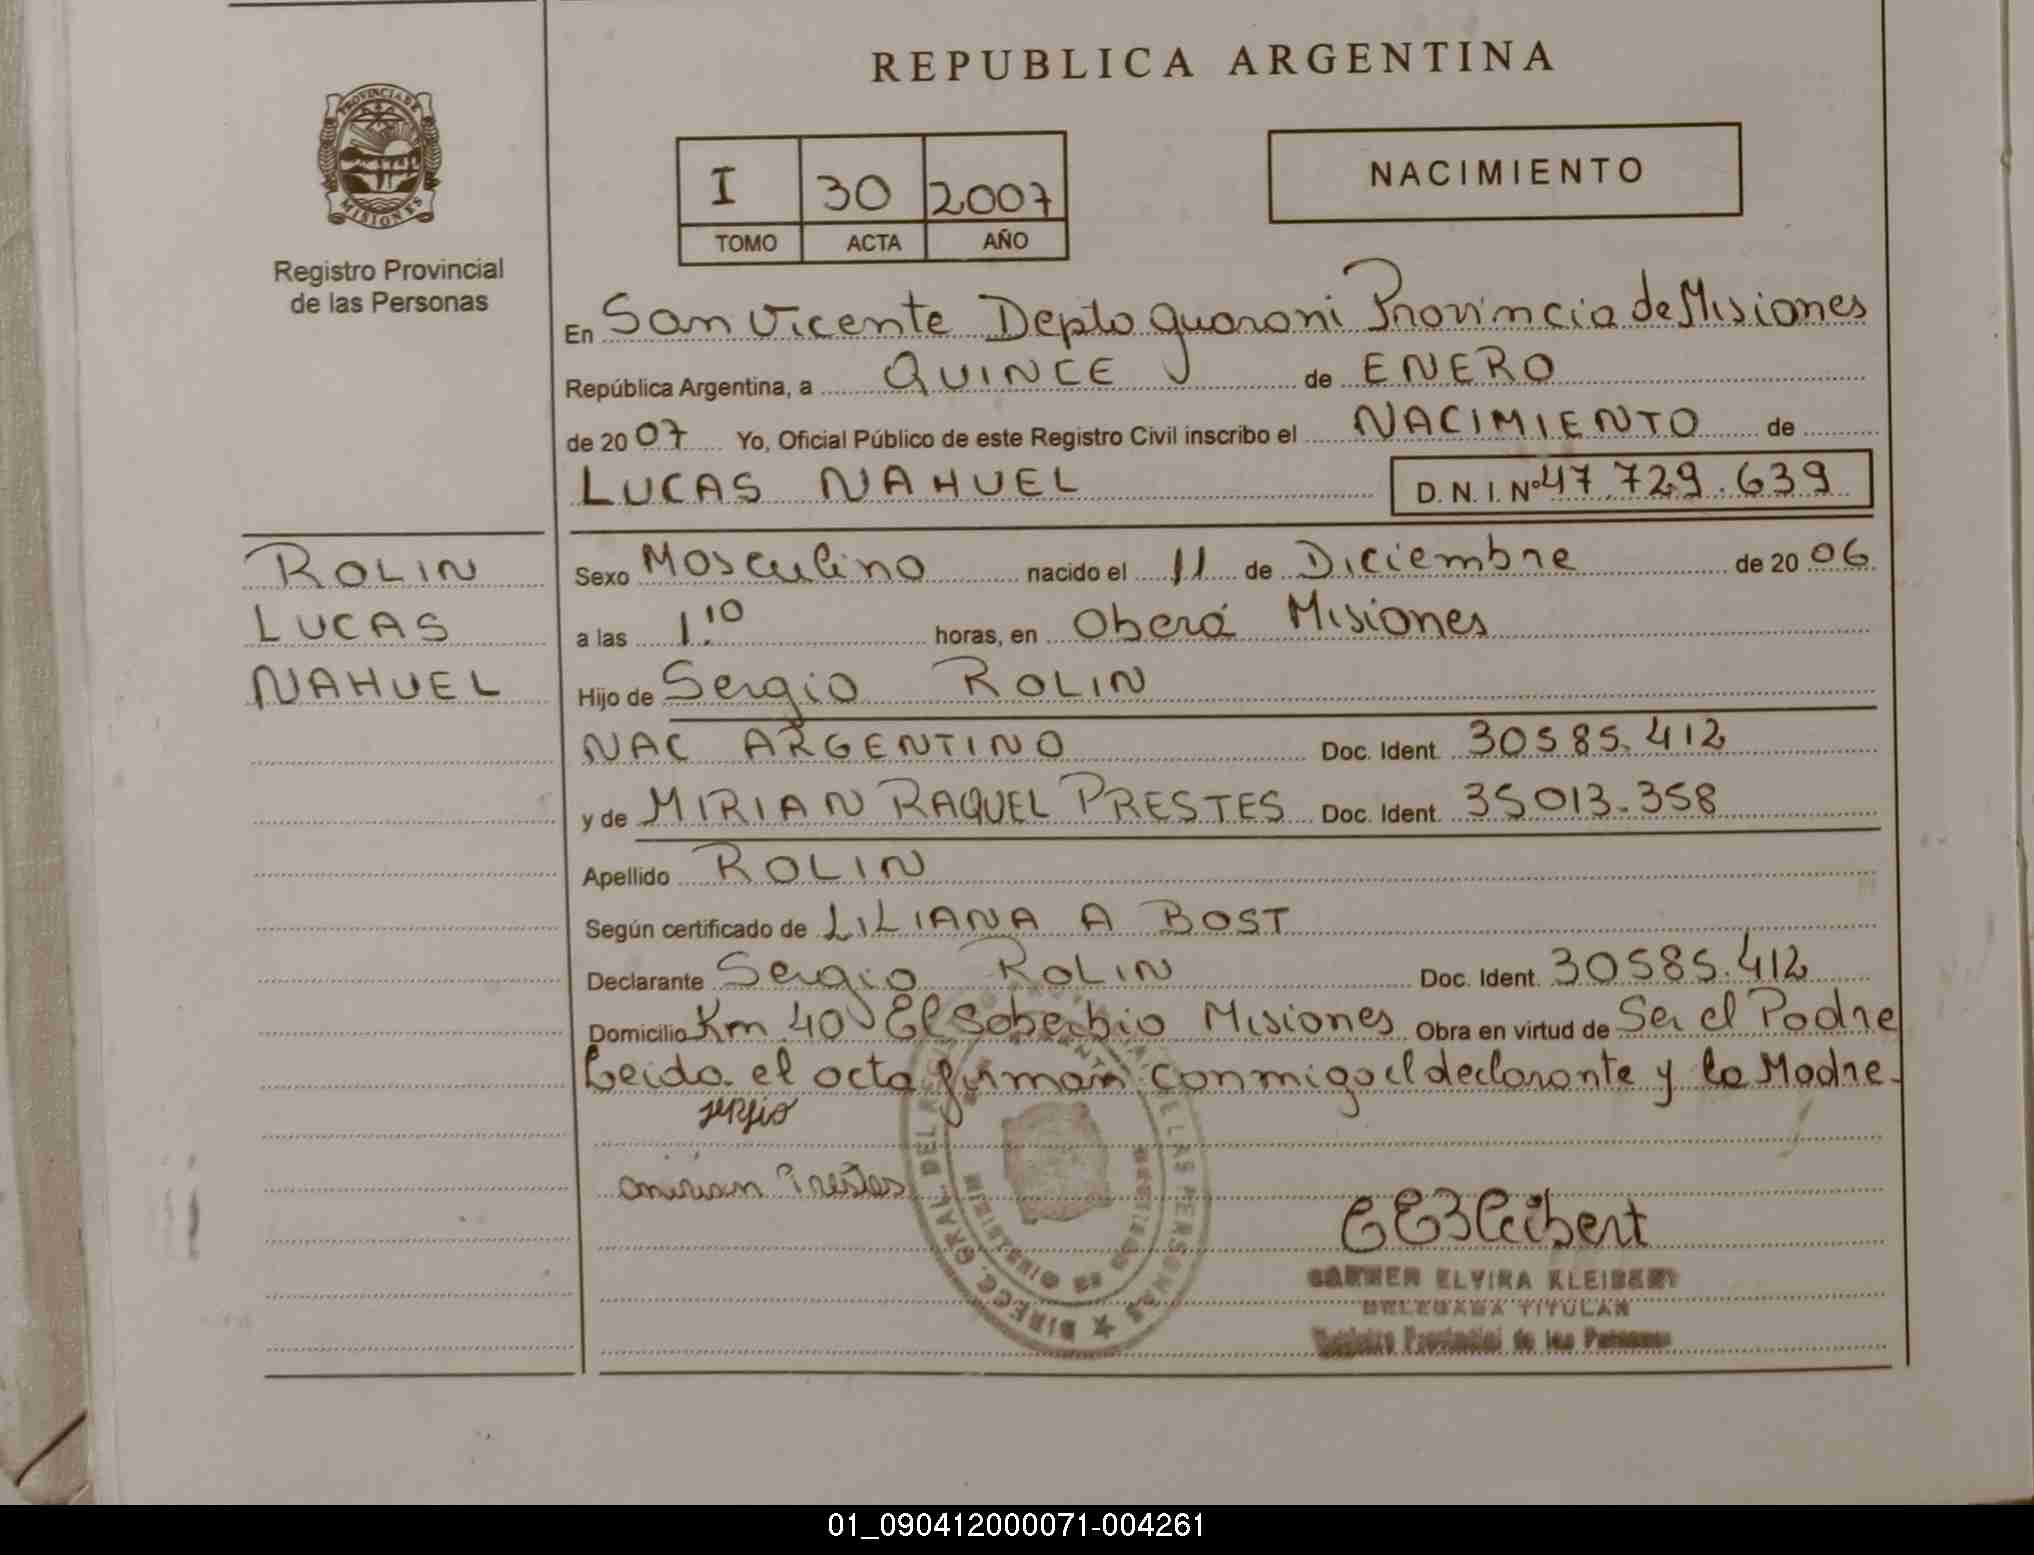 REPUBLICA ARGENTINA
PROVINCIA DE
MISIONES
Registro Provincial
de las Personas
I 30 2007
TOMO ACTA AÑO
NACIMIENTO
En San Vicente Depto guarani Provincia de Misiones
República Argentina, a QUINCE de ENERO
de 2007 Yo, Oficial Público de este Registro Civil inscribo el NACIMIENTO de
LUCAS NAHUEL D.N.I. Nº 47.729.639
ROLIN
LUCAS
NAHUEL
Sexo Masculino nacido el 11 de Diciembre de 2006
a las 1.10 horas, en Oberá Misiones
Hijo de Sergio ROLIN
NAC ARGENTINO Doc. Ident. 30585.412
y de MIRIAN RAQUEL PRESTES Doc. Ident. 35013.358
Apellido ROLIN
Según certificado de LILIANA A BOST
Declarante Sergio ROLIN Doc. Ident. 30585.412
Domicilio Km 40 El Soberbio Misiones Obra en virtud de Ser el Padre
Leida el acta firman conmigo el declarante y la Madre.
sergio
mirian Prestes
CEKleibert
CARMEN ELVIRA KLEIBERT
DELEGADA TITULAR
Registro Provincial de las Personas
01_090412000071-004261